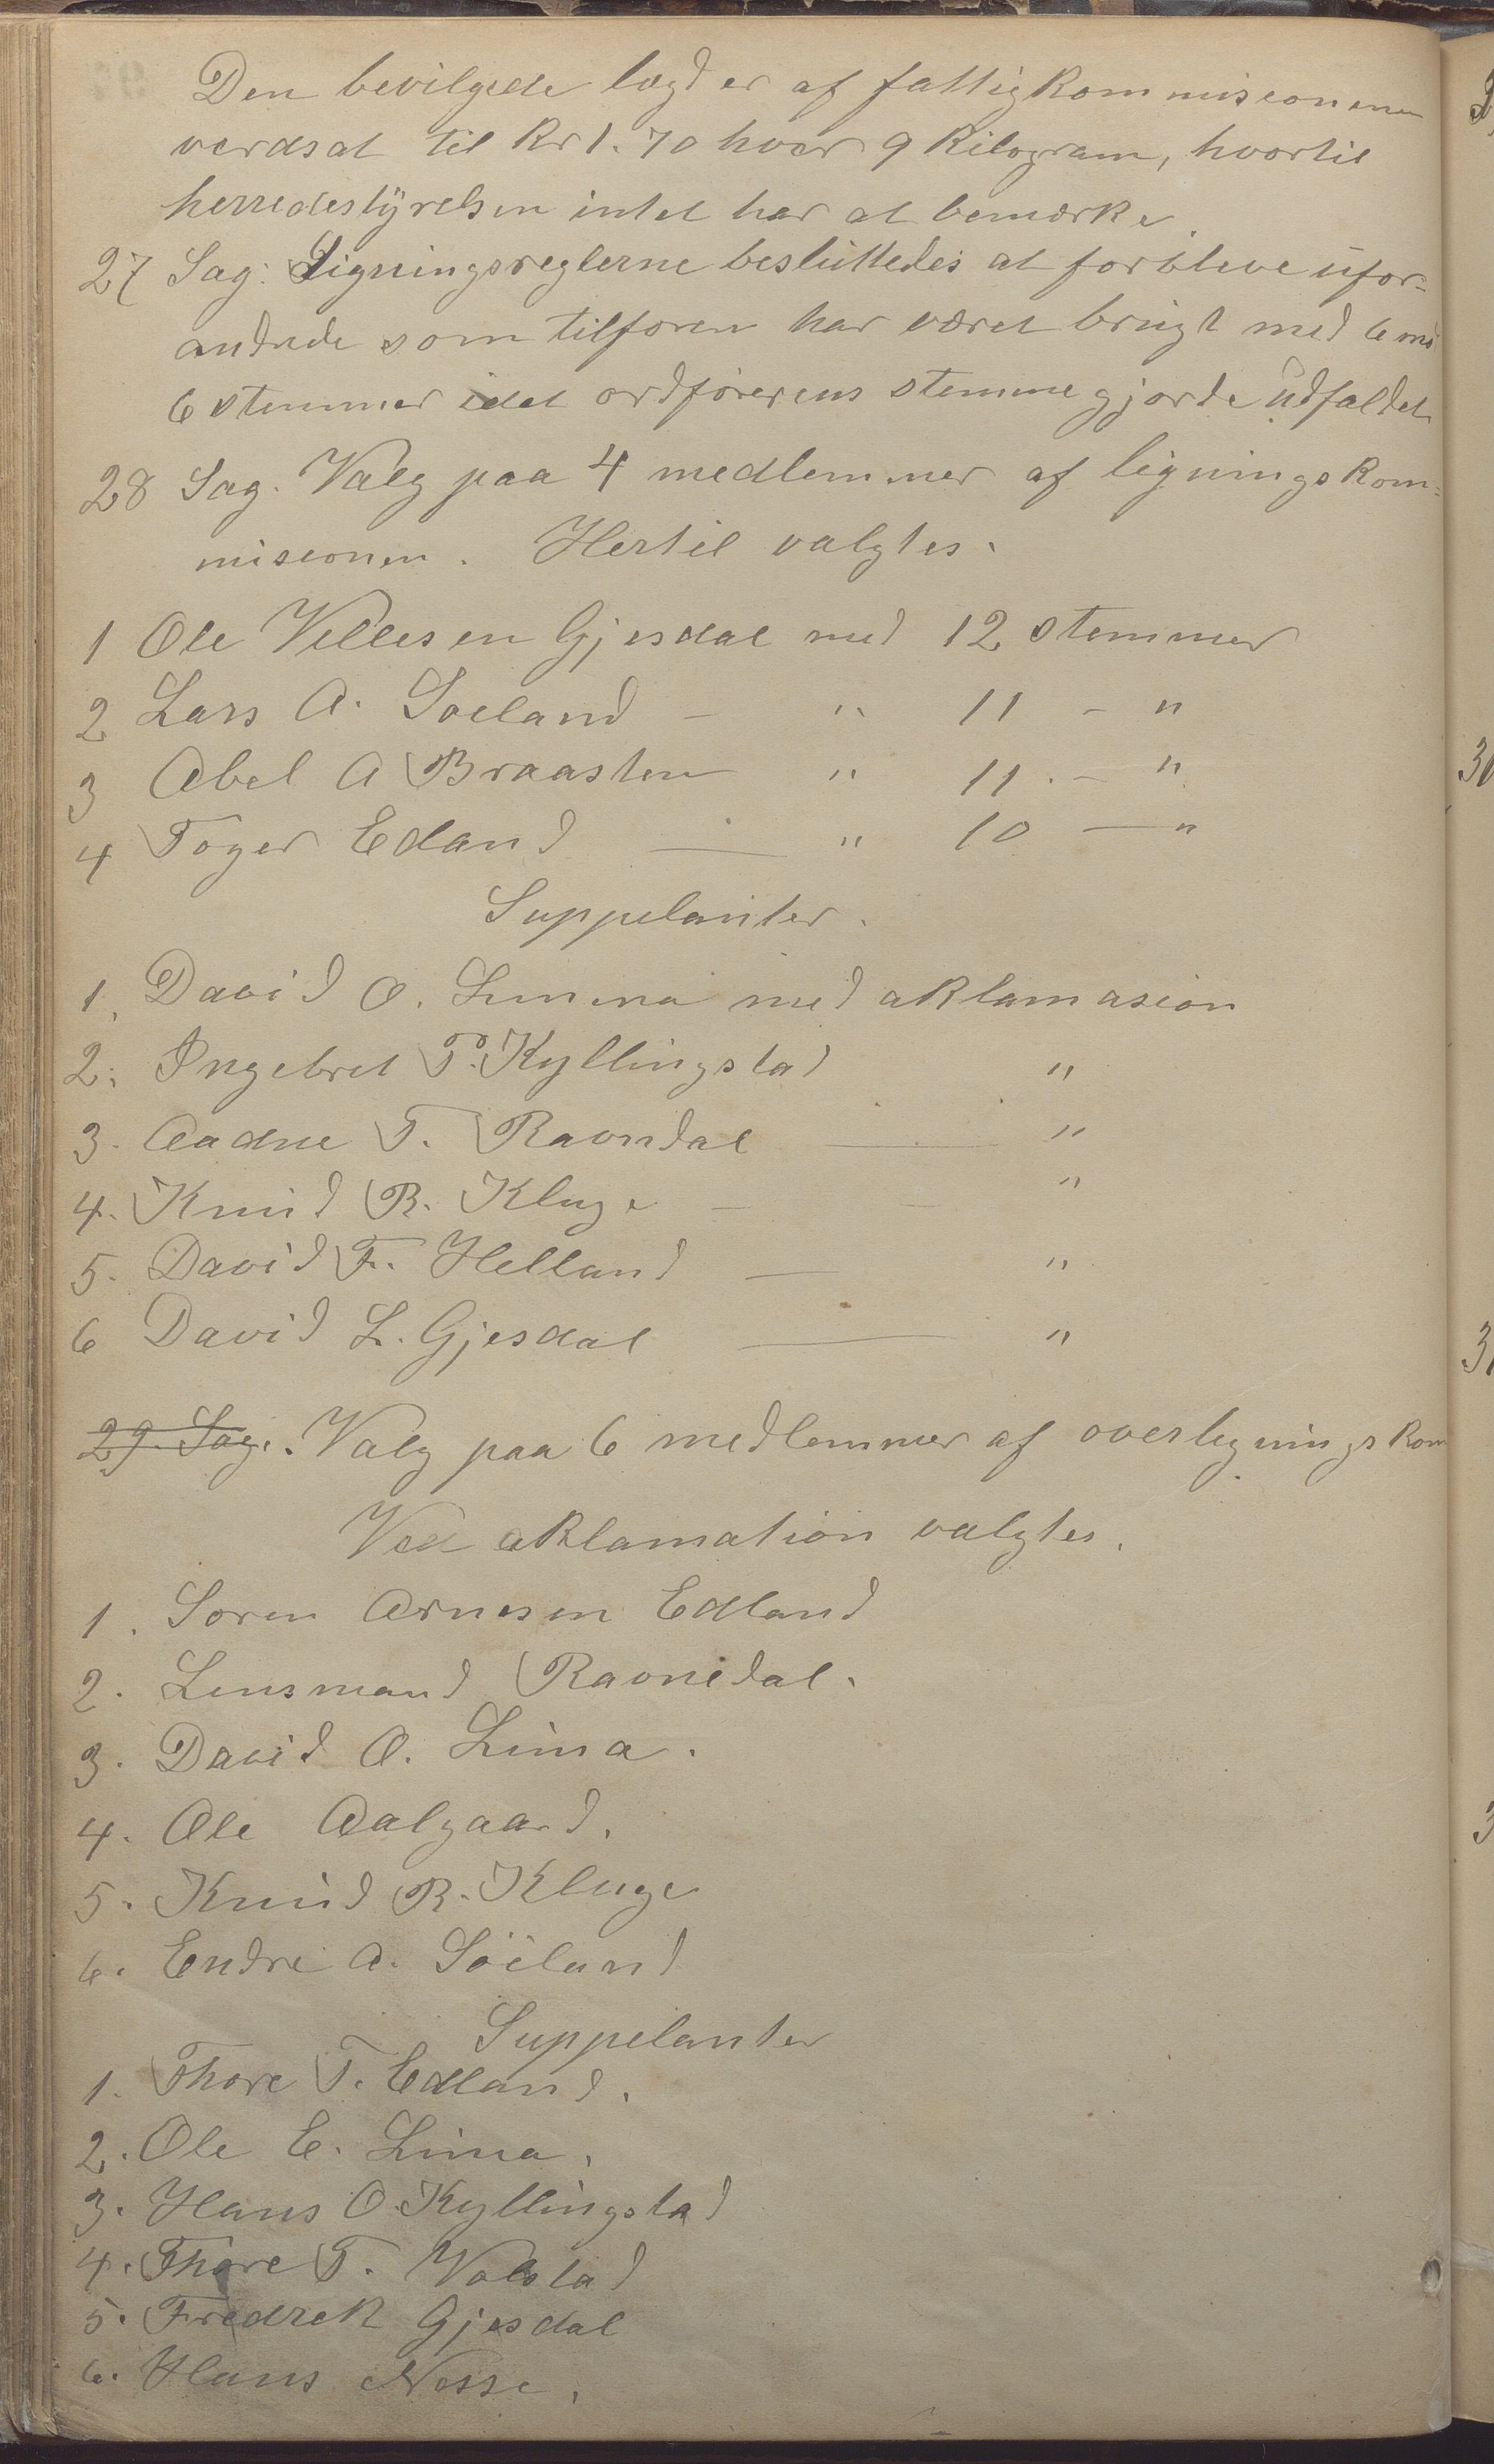 Den bevilgede lægd er af fattigkommissionen
verdsat til Kr 1.70 hver 9 Kilogram, hvortil
herredestyrelsen intet har at bemærke.
27 Sag: Ligningsreglerne besluttedes at forbleve ufor-
andrede som tilforen har været brugt med 6 mod
6 stemmer idet ordførerens stemme gjorde udfaldet
28 Sag. Valg paa 4 medlemmer af ligningskom-
misionen. Hertil valgtes.
1 Ole Villesen Gjesdal med 12 stemmer
2 Lars A. Soeland - " 11 - "
3 Abel A Braasten " 11 - "
4 Toger Edland — " 10 — "
Suppelanter.
1. David O. Limma med aklamasion
2. Ingebret T. Kyllingstad "
3. Aadne T. Ravndal — "
4. Knud R. Kluge - - "
5. David F. Helland — "
6 David L. Gjesdal — "
29. Sag. Valg paa 6 medlemmer af overligningskom
Ved aklamation valgtes.
1. Soren Arnesen Edland
2. Lensmand Ravnedal.
3. David O. Lima.
4. Ole Aalgaard.
5. Knud R. Kluge
6. Endre A. Söiland
Suppelanter
1. Thore T. Edland.
2. Ole E. Lima.
3. Hans O. Kyllingstad
4. Thore T. Valstad
5. Fredrek Gjesdal
6. Hans Nesse.